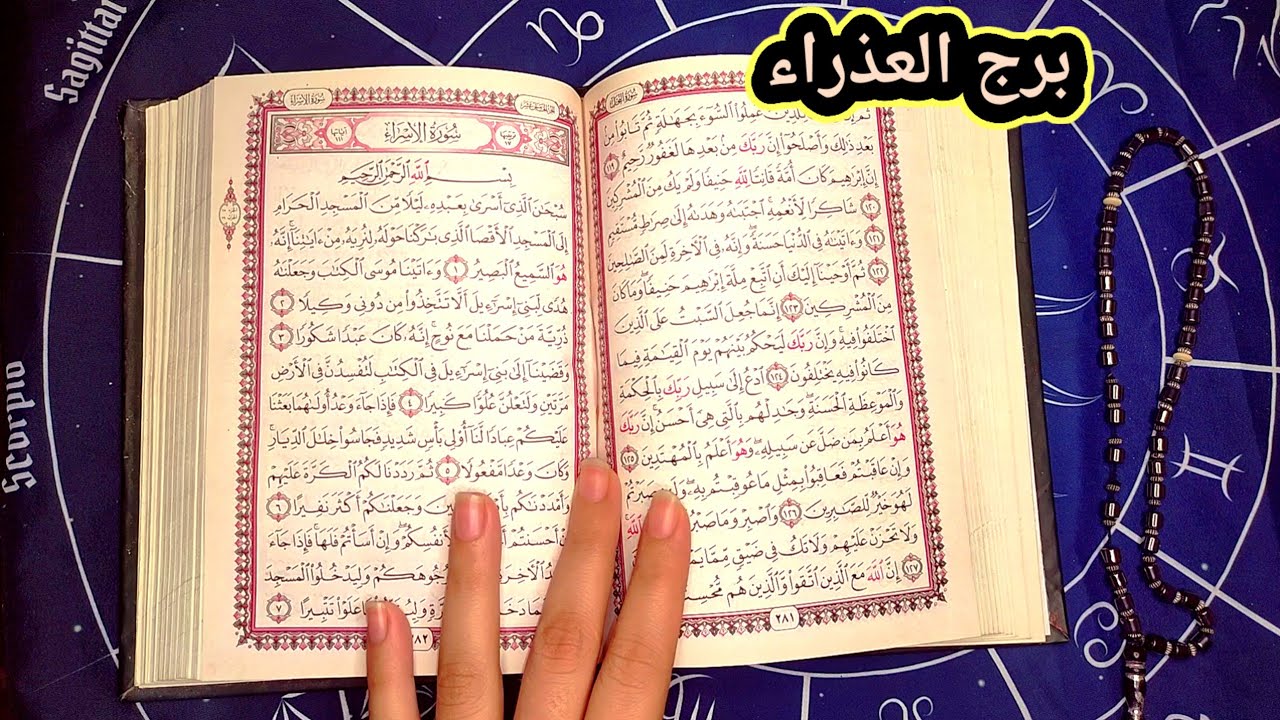 برج العذراء
Sagittar
Scorpio
سُورَةُ النَّحْل
ثُمَّ لِلَّذِينَ عَمِلُوا۟ السُّوٓءَ بِجَهَٰلَةٍ ثُمَّ تَابُوا۟ مِنۢ
بَعْدِ ذَٰلِكَ وَأَصْلَحُوٓا۟ إِنَّ رَبَّكَ مِنۢ بَعْدِهَا لَغَفُورٌ رَّحِيمٌ ١١٩
إِنَّ إِبْرَٰهِيمَ كَانَ أُمَّةً قَانِتًا لِّلَّهِ حَنِيفًا وَلَمْ يَكُ مِنَ الْمُشْرِكِينَ
١٢٠ شَاكِرًا لِّأَنْعُمِهِ اجْتَبَىٰهُ وَهَدَىٰهُ إِلَىٰ صِرَٰطٍ مُّسْتَقِيمٍ
١٢١ وَءَاتَيْنَٰهُ فِي الدُّنْيَا حَسَنَةً وَإِنَّهُ فِي الْءَاخِرَةِ لَمِنَ الصَّٰلِحِينَ
١٢٢ ثُمَّ أَوْحَيْنَآ إِلَيْكَ أَنِ اتَّبِعْ مِلَّةَ إِبْرَٰهِيمَ حَنِيفًا وَمَا كَانَ
مِنَ الْمُشْرِكِينَ ١٢٣ إِنَّمَا جُعِلَ السَّبْتُ عَلَى الَّذِينَ
اخْتَلَفُوا۟ فِيهِ وَإِنَّ رَبَّكَ لَيَحْكُمُ بَيْنَهُمْ يَوْمَ الْقِيَٰمَةِ فِيمَا
كَانُوا۟ فِيهِ يَخْتَلِفُونَ ١٢٤ ادْعُ إِلَىٰ سَبِيلِ رَبِّكَ بِالْحِكْمَةِ
وَالْمَوْعِظَةِ الْحَسَنَةِ وَجَٰدِلْهُم بِالَّتِي هِيَ أَحْسَنُ إِنَّ رَبَّكَ
هُوَ أَعْلَمُ بِمَن ضَلَّ عَن سَبِيلِهِ وَهُوَ أَعْلَمُ بِالْمُهْتَدِينَ ١٢٥
وَإِنْ عَاقَبْتُمْ فَعَاقِبُوا۟ بِمِثْلِ مَا عُوقِبْتُم بِهِ وَلَئِن صَبَرْتُمْ
لَهُوَ خَيْرٌ لِّلصَّٰبِرِينَ ١٢٦ وَاصْبِرْ وَمَا صَبْرُكَ اللَّهِ
وَلَا تَحْزَنْ عَلَيْهِمْ وَلَا تَكُ فِي ضَيْقٍ مِّمَّا
١٢٧ إِنَّ اللَّهَ مَعَ الَّذِينَ اتَّقَوا۟ وَّالَّذِينَ هُم
٢٨١
سُورَةُ الْإِسْرَاء
سُورَةُ الْإِسْرَاء
بِسْمِ اللَّهِ الرَّحْمَٰنِ الرَّحِيمِ
سُبْحَٰنَ الَّذِيٓ أَسْرَىٰ بِعَبْدِهِ لَيْلًا مِّنَ الْمَسْجِدِ الْحَرَامِ
إِلَى الْمَسْجِدِ الْأَقْصَا الَّذِي بَٰرَكْنَا حَوْلَهُ لِنُرِيَهُ مِنْ ءَايَٰتِنَآ إِنَّهُ
هُوَ السَّمِيعُ الْبَصِيرُ ١ وَءَاتَيْنَا مُوسَى الْكِتَٰبَ وَجَعَلْنَٰهُ
هُدًى لِّبَنِيٓ إِسْرَٰٓءِيلَ أَلَّا تَتَّخِذُوا۟ مِن دُونِي وَكِيلًا ٢
ذُرِّيَّةَ مَنْ حَمَلْنَا مَعَ نُوحٍ إِنَّهُ كَانَ عَبْدًا شَكُورًا ٣
وَقَضَيْنَآ إِلَىٰ بَنِيٓ إِسْرَٰٓءِيلَ فِي الْكِتَٰبِ لَتُفْسِدُنَّ فِي الْأَرْضِ
مَرَّتَيْنِ وَلَتَعْلُنَّ عُلُوًّا كَبِيرًا ٤ فَإِذَا جَآءَ وَعْدُ أُولَىٰهُمَا بَعَثْنَا
عَلَيْكُمْ عِبَادًا لَّنَآ أُو۟لِي بَأْسٍ شَدِيدٍ فَجَاسُوا۟ خِلَٰلَ الدِّيَارِ
وَكَانَ وَعْدًا مَّفْعُولًا ٥ ثُمَّ رَدَدْنَا لَكُمُ الْكَرَّةَ عَلَيْهِمْ
وَأَمْدَدْنَٰكُم وَجَعَلْنَٰكُمْ أَكْثَرَ نَفِيرًا ٦
إِنْ أَحْسَنتُمْ لِأَنفُسِكُمْ وَإِنْ أَسَأْتُمْ فَلَهَا فَإِذَا جَآءَ
وَعْدُ الْءَاخِرَةِ وُجُوهَكُمْ وَلِيَدْخُلُوا۟ الْمَسْجِدَ
كَمَا مَرَّةٍ عَلَوْا۟ تَتْبِيرًا ٧